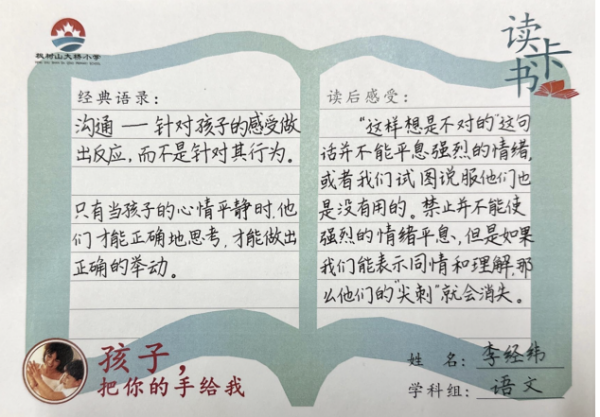 枫树山大桥小学
读书卡
经典语录：
沟通 —— 针对孩子的感受做
出反应，而不是针对其行为。
只有当孩子的心情平静时，他
们才能正确地思考，才能做出
正确的举动。
读后感受：
“这样想是不对的”这句
话并不能平息强烈的情绪，
或者我们试图说服他们也
是没有用的。禁止并不能使
强烈的情绪平息，但是如果
我们能表示同情和理解，那
么他们的“尖刺”就会消失。
孩子，
把你的手给我
姓 名：李经纬
学科组：语文